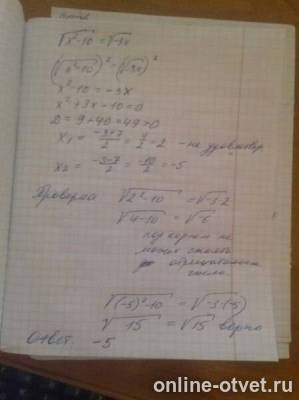 √x²-10 = √-3x
(√x²-10)² = (√-3x)²
x²-10 = -3x
x²+3x-10=0
D = 9+40=49>0
x₁ = -3+7/2 = 4/2 = 2 - не удовлетвор
x₂ = -3-7/2 = -10/2 = -5
Проверка √2²-10 = √-3·2
√4-10 = √-6
под корнем не
может стоять
отрицательное
число
√(-5)²-10 = √-3·(-5)
√15 = √15 верно
Ответ. -5
online-otvet.ru